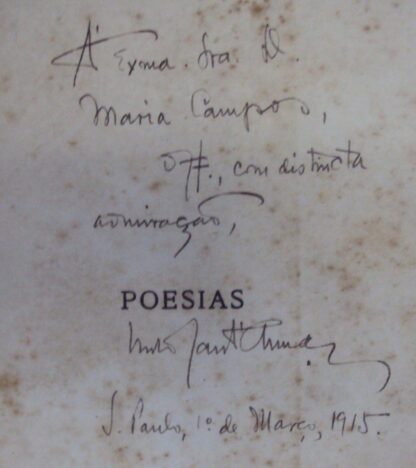 Á Exma. Sra. D.
Maria Campos,
off., com distincta
admiração,
POESIAS
Sant'Anna
S. Paulo, 1º de Março, 1915.